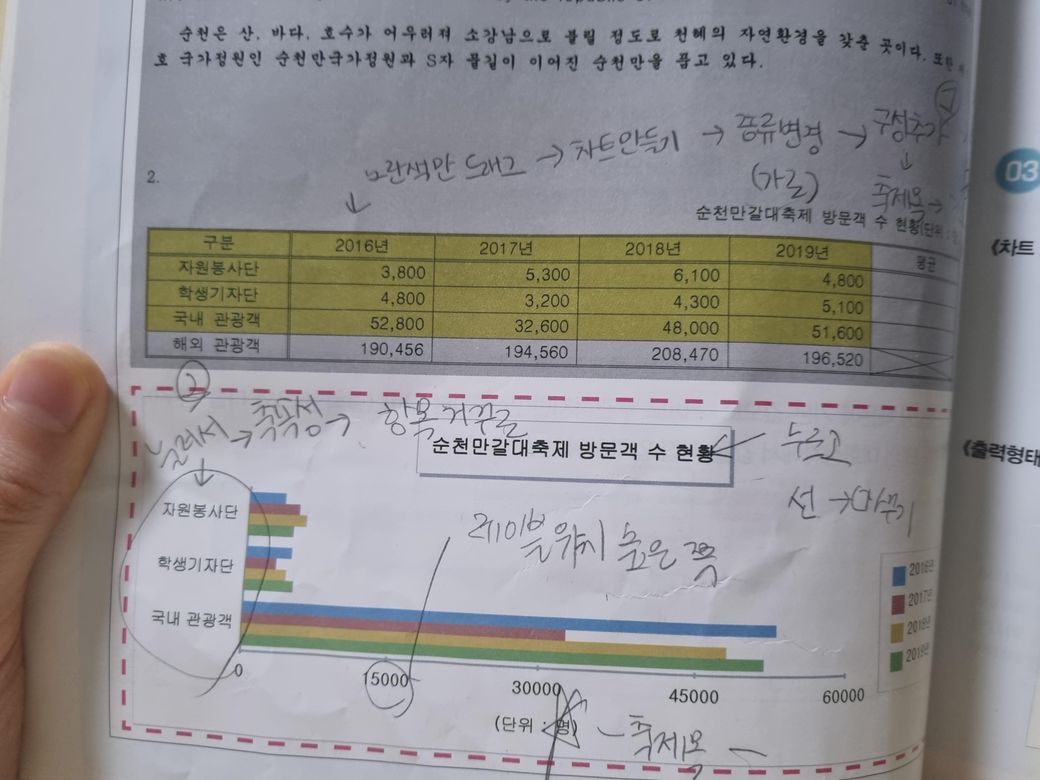 순천은 산, 바다, 호수가 어우러져 소강남으로 불릴 정도로 천혜의 자연환경을 갖춘 곳이다. 또한
호 국가정원인 순천만국가정원과 S자 물길이 이어진 순천만을 품고 있다.
노란색만 드래그 → 차트만들기 → 종류변경 → 구성추가
(가로) ↓
축제목 →
2.
순천만갈대축제 방문객 수 현황(단위 :
구분 2016년 2017년 2018년 2019년 평균
자원봉사단 3,800 5,300 6,100 4,800
학생기자단 4,800 3,200 4,300 5,100
국내 관광객 52,800 32,600 48,000 51,600
해외 관광객 190,456 194,560 208,470 196,520
②
눌러서 → 축속성 → 항목거꾸로
순천만갈대축제 방문객 수 현황
← 누르고
선 →
레이블위치 높은 쪽
자원봉사단
학생기자단
국내 관광객
0 15000 30000 45000 60000
(단위 : 명)
축제목
2016년
2017년
2018년
2019년
03
《차트
《출력형태